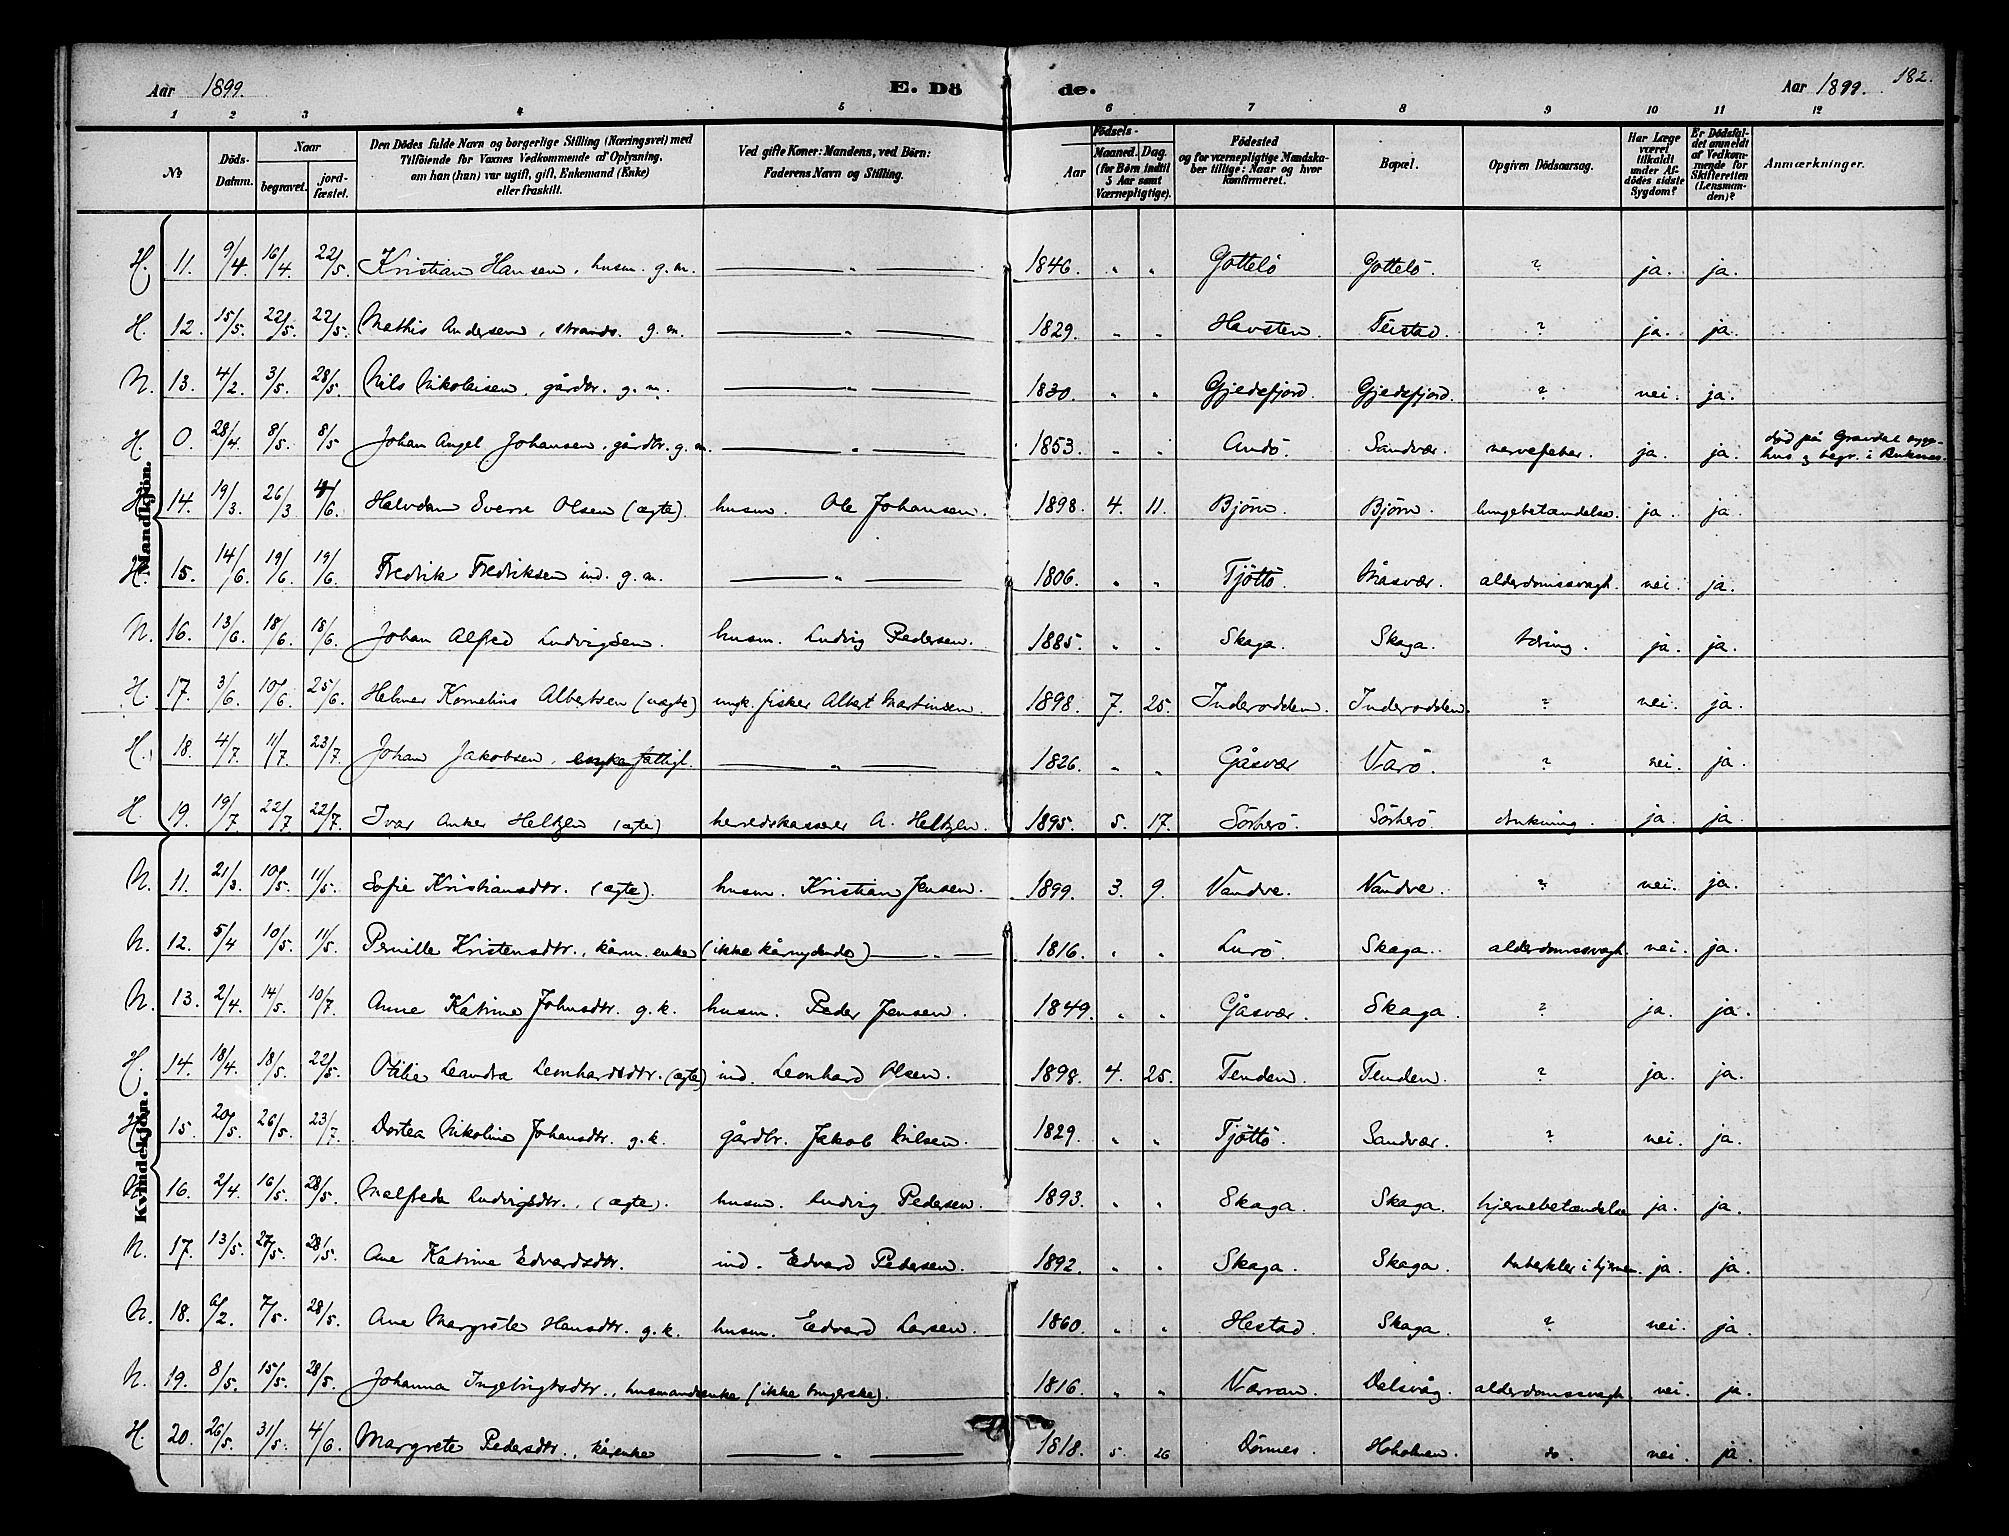 Aar 1899. E. Dö de. Aar 1899. 182.
1 2 3 4 5 6 7 8 9 10 11 12
№ Döds-Datum. Naar begravet. jordfæstet. Den Dödes fulde Navn og borgerlige Stilling (Næringsvei) med Tilföiende for Voxnes Vedkommende af Oplysning, om han (hun) var ugift, gift, Enkemand (Enke) eller fraskilt. Ved gifte Koner: Mandens, ved Börn: Faderens Navn og Stilling. Födsels- Aar Maaned. Dag. (for Børn indtil 5 Aar samt Værnepligtige). Födested og for værnepligtige Mandskaber tillige: Naar og hvor konfirmeret. Bopæl. Opgiven Dödsaarsag. Har Læge været tilkaldt under Afdödes sidste Sygdom? Er Dödsfaldet anmeldt af Vedkommende for Skifteretten (Lensmanden)? Anmærkninger.
Mandkjön.
H. 11. 9/4 16/4 22/5 Kristian Hansen, husm. g.m. — „ — 1846. „ „ Gottelö Gottelö. ? ja. ja.
H. 12. 15/5 22/5 22/5 Mathis Andersen, strands. g.m. — „ — 1829. „ „ Havsten. Teistad. ? ja. ja.
N. 13. 4/2 3/5 28/5 Nils Nikolaisen, gårdbr. g.m. — „ — 1830. „ „ Gjedefjord. Gjedefjord. ? nei. ja.
H. 0. 28/4 8/5 8/5 Johan Angel Johansen, gårdbr. g.m. — „ — 1853. „ „ Andö Sandvær. nervefeber. ja. ja. död på Gravdal syge-
hus og begr. i Buknes.
H. 14. 19/3 26/3 4/6 Halvdan Sverre Olsen (ægte). husm. Ole Johansen. 1898. 4. 11. Bjørn. Bjørn. lungebetændelse. ja. ja.
H. 15. 14/6 19/6 19/6 Fredrik Fredriksen ind. g.m. — „ — 1806. „ „ Tjöttö Måsvær. alderdomssvagh. nei. ja.
N. 16. 13/6 18/6 18/6 Johan Alfred Ludvigsen. husm. Ludvig Pedersen. 1885. „ „ Skaga. Skaga. tæring. ja. ja.
H. 17. 3/6 10/6 25/6 Helmer Kornelius Albertsen (uægte) ungk. fisker Albert Martinsen. 1898. 7. 25. Inderodden. Inderodden. ? nei. ja.
H. 18. 4/7 11/7 23/7 Johan Jakobsen, fattigl. — „ — 1826. „ „ Gåsvær Varö. ? nei. ja.
H. 19. 19/7 22/7 22/7 Ivar Anker Heltzen (ægte) herredskasserer A. Heltzen. 1895. 5. 17. Sörherö. Sörherö. drukning. ja. ja.
Kvindekjön.
N. 11. 21/3 10/5 11/5 Sofie Kristiansdtr. (ægte). husm. Kristian Jensen. 1899. 3. 9. Vandve. Vandve. ? nei. ja.
N. 12. 5/4 10/5 11/5 Pernille Kristensdtr., kårm. enke (ikke kårnydende) — „ — 1816. „ „ Lurö Skaga. alderdomssvagh. nei. ja.
N. 13. 2/4 14/5 10/7 Anne Katrine Johnsdtr. g.k. husm. Peder Jensen. 1849. „ „ Gåsvær. Skaga. ? ja. ja.
H. 14. 18/4 18/5 22/5 Otilie Leandra Leonhardsdtr. (ægte) ind. Leonhard Olsen. 1898. 4. 25. Tenden. Tenden. ? ja. ja.
H. 15. 20/5 26/5 23/7 Dortea Nikoline Johansdtr. g.k. gårdbr. Jakob Nilsen. 1829. „ „ Tjöttö Sandvær. ? nei. ja.
N. 16. 2/4 16/5 28/5 Malfreda Ludvigsdtr., (ægte). husm. Ludvig Pedersen. 1893. „ „ Skaga. Skaga. hjernebetændelse ja. ja.
N. 17. 13/5 27/5 28/5 Ane Katrine Edvardsdtr. ind. Edvard Petersen. 1892. „ „ Skaga. Skaga. tuberkler i hjernen. ja. ja.
N. 18. 6/2 7/5 28/5 Ane Margrete Hansdtr. g.k. husm. Edvard Larsen. 1860. „ „ Hestad. Skaga. ? nei. ja.
N. 19. 8/5 15/5 28/5 Johanna Ingebrigtsdtr., husmandsenke (ikke brugerske). 1816. „ „ Værran. Dalsvåg. alderdomssvagh. nei. ja.
H. 20. 26/5 31/5 4/6 Margrete Pedersdtr., kårenke — „ — 1818. 5. 26 Dönnes Hoholmen. do. nei. ja.